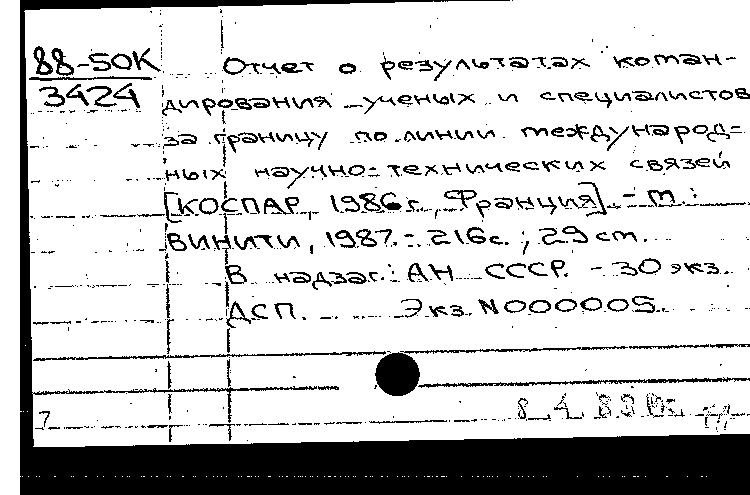 88-50К
3424
Отчет о результатах коман-
дирования ученых и специалистов
за границу по линии международ-
ных научно-технических связей
[КОСПАР, 1986 г., Франция]. - М.:
ВИНИТИ, 1987. - 216с.; 29 см.
В надзаг.: АН СССР. - 30 экз.
ДСП. Экз. N000005.
7